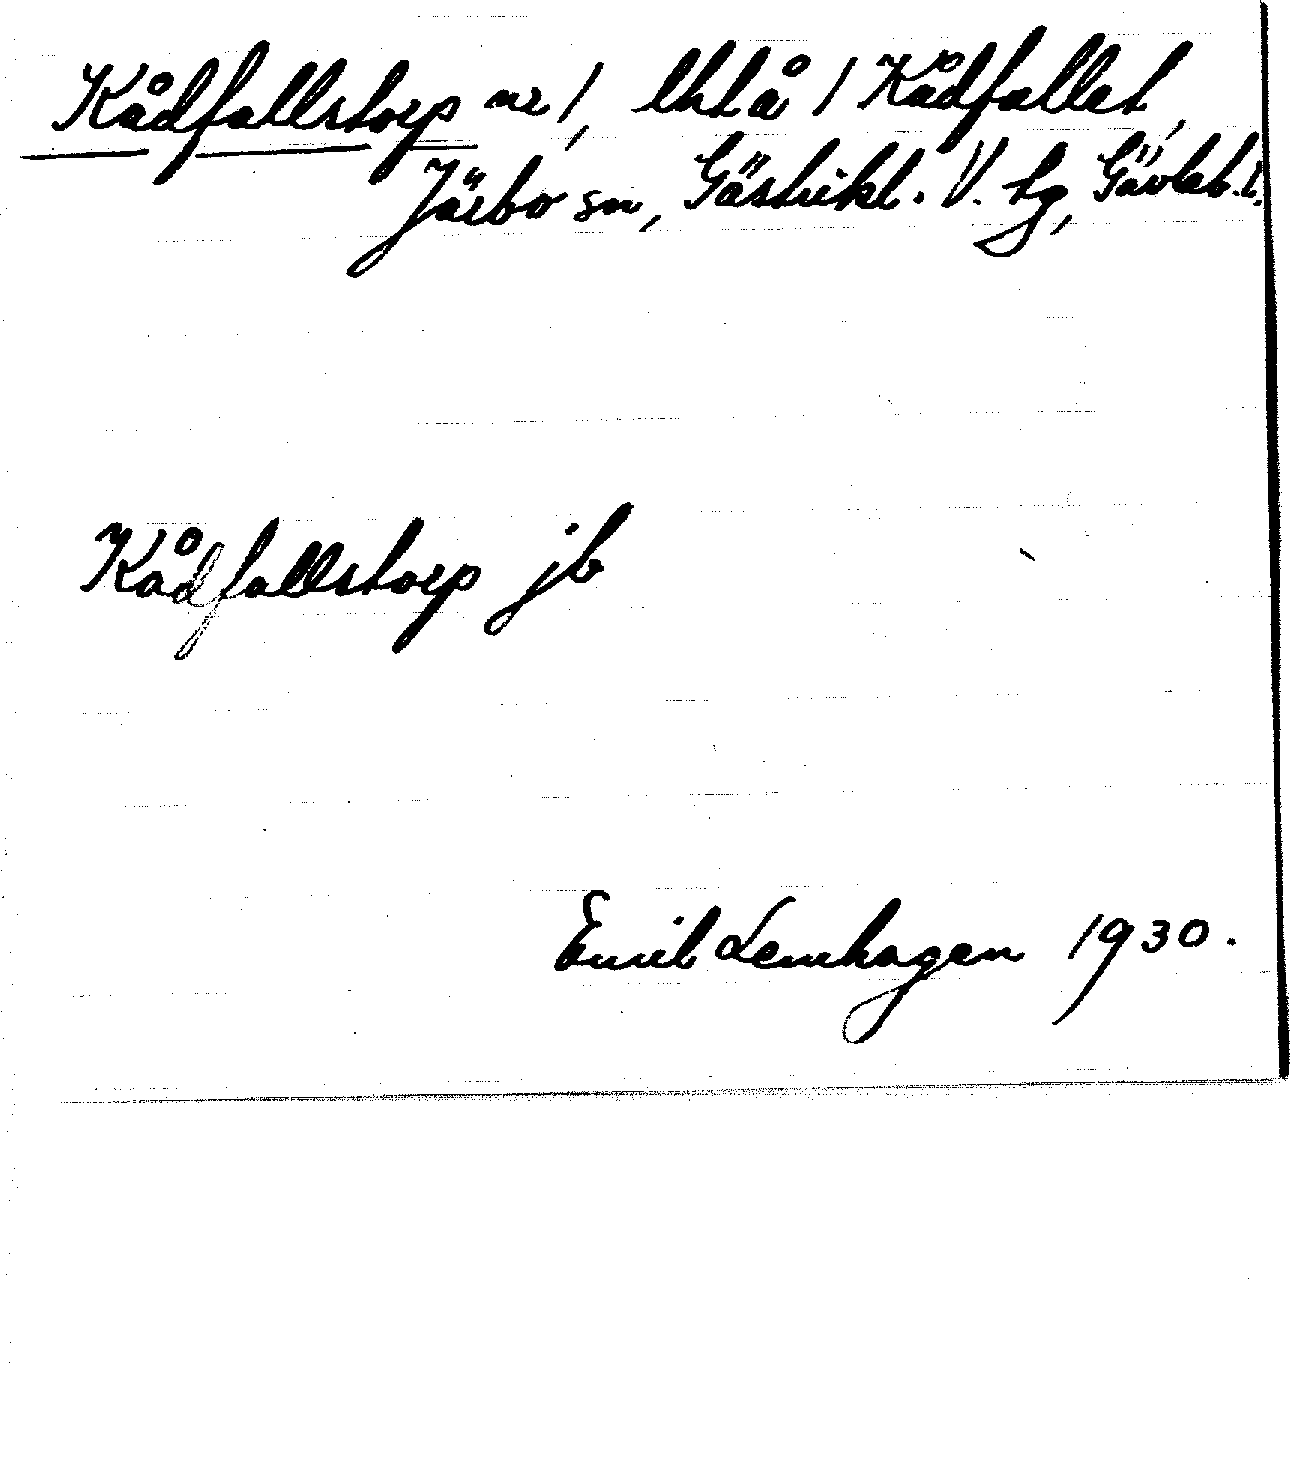 Kådfallstorp nr 1, lhtå 1 Kådfallet,
Järbo sn, Gästrikl. V. tg, Gävleb. l.
Kådfallstorp jb
Emil Lenhagen 1930.